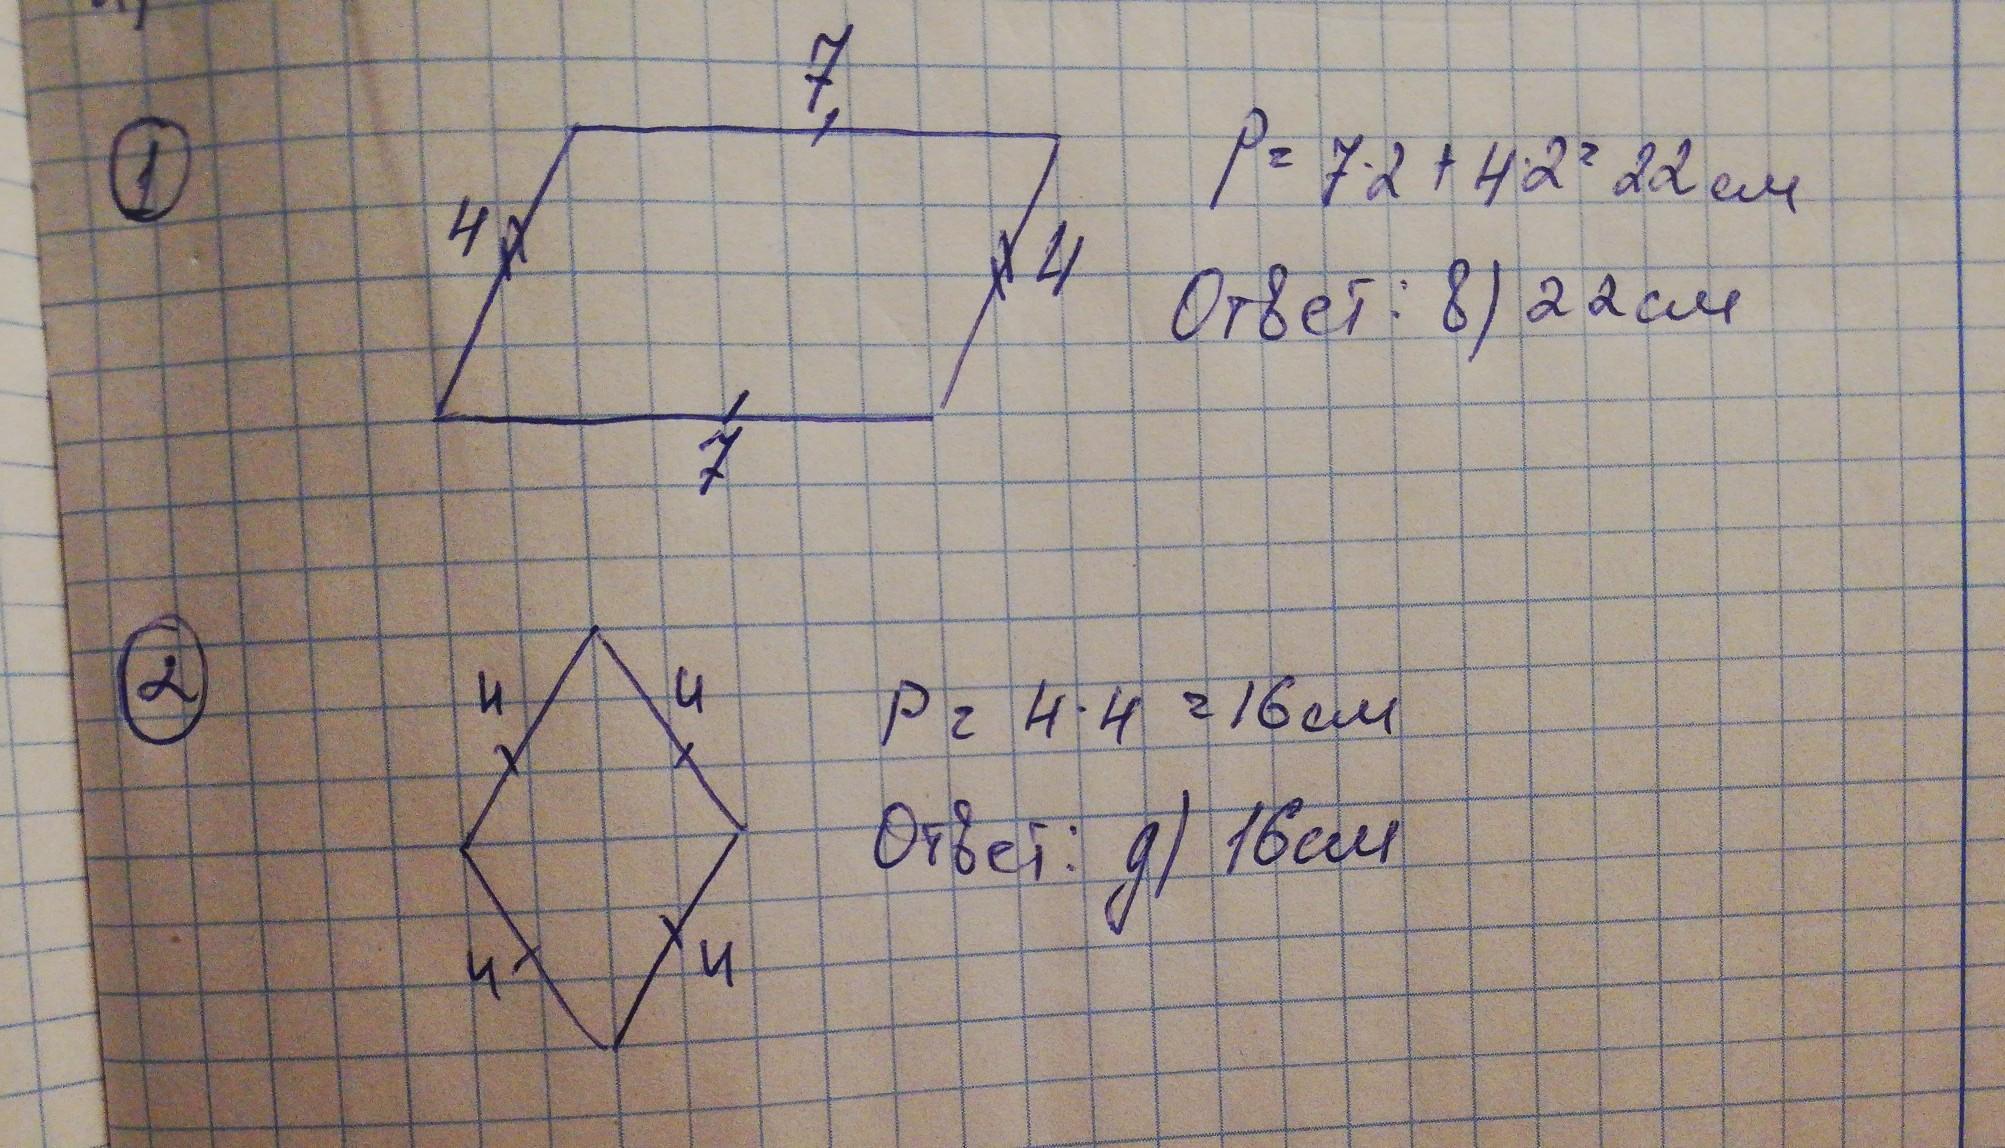 1
7
P = 7·2 + 4·2 = 22 см
4
4
Ответ: в) 22 см
7
2
4 4
P = 4·4 = 16 см
Ответ: д) 16 см
4 4